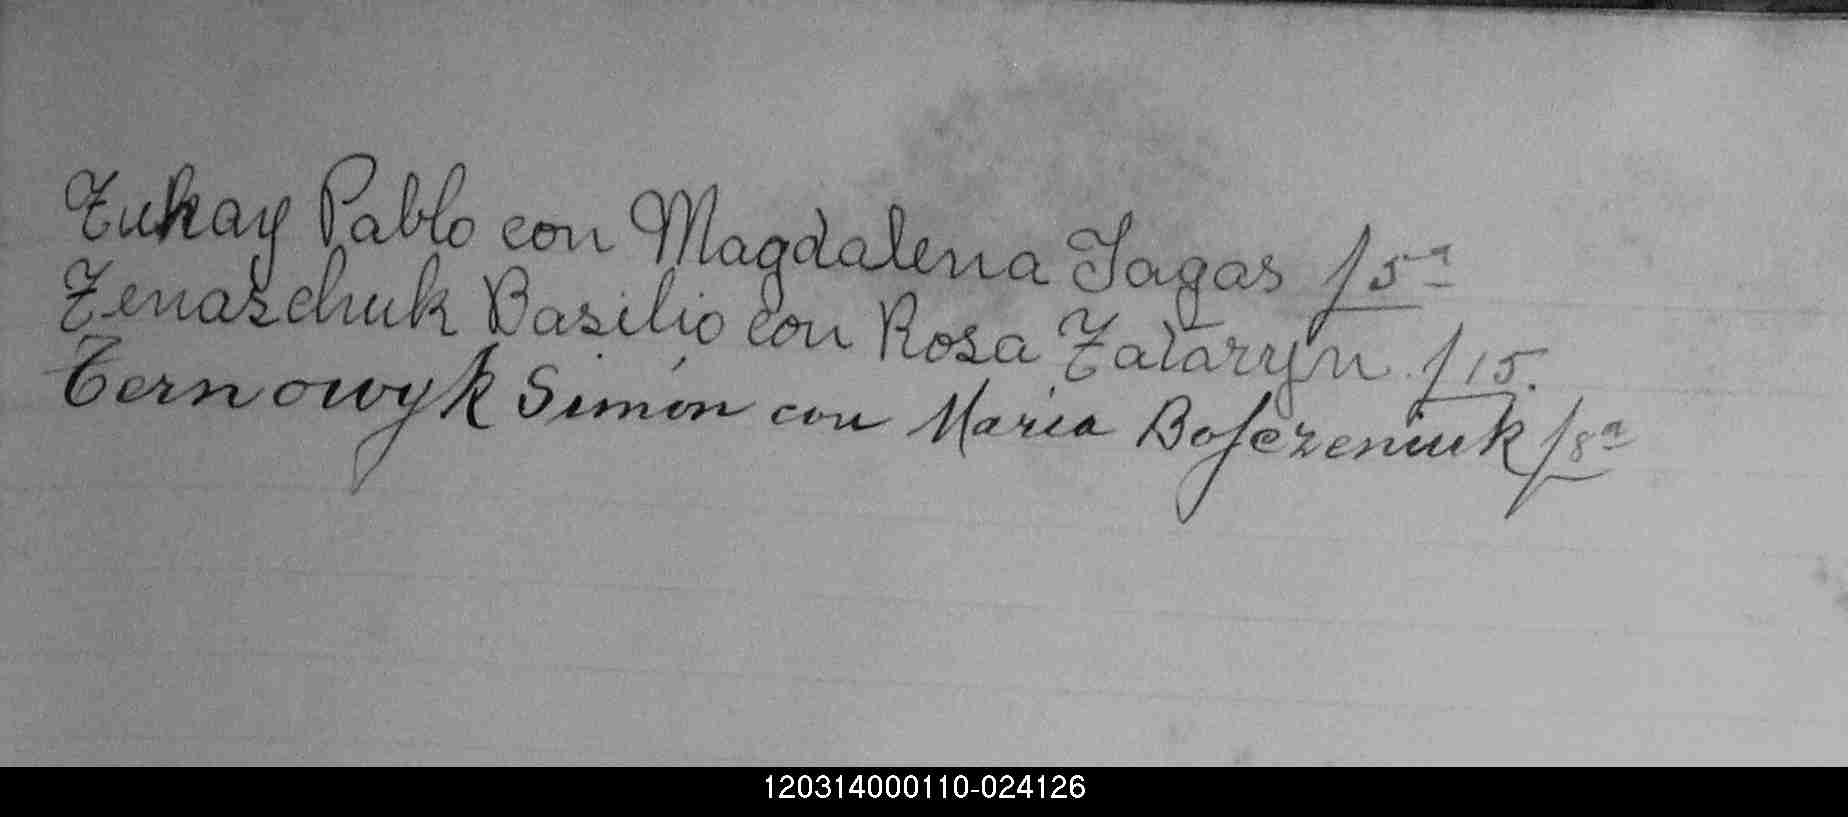 Tukay Pablo con Magdalena Jagas f 5ª
Tenaszchuk Basilio con Rosa Tataryn f 15.
Ternowyk Simón con Maria f 8ª
120314000110-024126